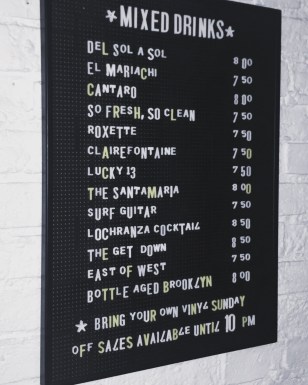 ★MIXED DRINKS★
DEL SOL A SOL 8 00
EL MARIACHI 7 50
CANTARO 8 00
SO FRESH, SO CLEAN 7 50
ROXETTE 7 50
CLAIREFONTAINE 7 50
LUCKY 13 7 50
THE SANTAMARIA 8 00
SURF GUITAR 7 50
LOCHRANZA COCKTAIL 8 50
THE GET DOWN 7 50
EAST OF WEST 8 50
BOTTLE AGED BROOKLYN 8 00
★ BRING YOUR OWN VINYL SUNDAY
OFF SALES AVAILABLE UNTIL 10 PM